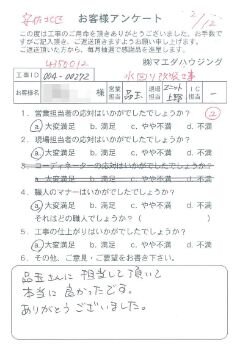 お客様アンケート
2/12
この度は工事のご用命を頂きありがとうございました。お手数で
すがご記入頂き、ご返送頂きますようお願い申し上げます。
ご返送頂いた方から、毎月抽選で感謝品を進呈します。
4450012
㈱マエダハウジング
工事ID 004-00272 水回り改装工事
お客様名 様 営業担当 品玉 現場担当 上野 工事担当 ー
1. 営業担当者の応対はいかがでしたでしょうか?
a. 大変満足 b. 満足 c. やや不満 d. 不満
2. 現場担当者の応対はいかがでしたでしょうか?
a. 大変満足 b. 満足 c. やや不満 d. 不満
3. コーディネーターの応対はいかがでしたでしょうか?
a. 大変満足 b. 満足 c. やや不満 d. 不満
4. 職人のマナーはいかがでしたでしょうか?
a. 大変満足 b. 満足 c. やや不満 d. 不満
それはどの職人でしょうか?( )
5. 工事の仕上がりはいかがでしたでしょうか?
a. 大変満足 b. 満足 c. やや不満 d. 不満
6. その他、ご意見・ご要望をお書き下さい。
品玉さんに担当して頂いて
本当に良かったです。
ありがとうございました。